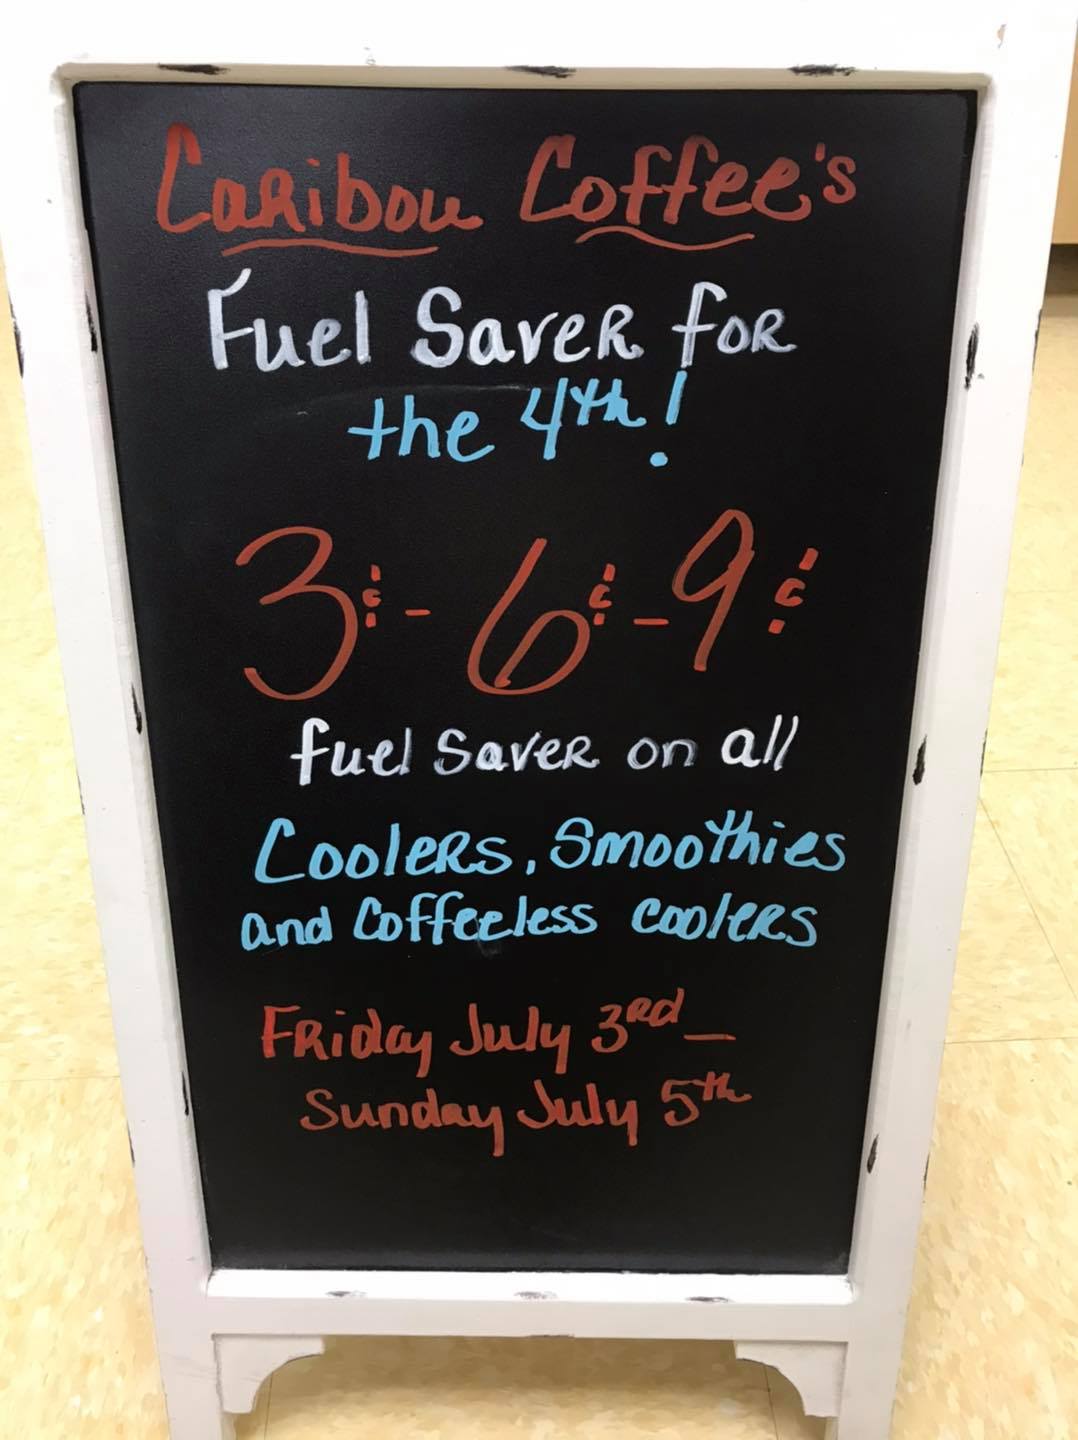 Caribou Coffee's
Fuel Saver for
the 4th!
3¢ - 6¢ - 9¢
fuel Saver on all
Coolers, Smoothies
and Coffeeless coolers
Friday July 3rd -
Sunday July 5th